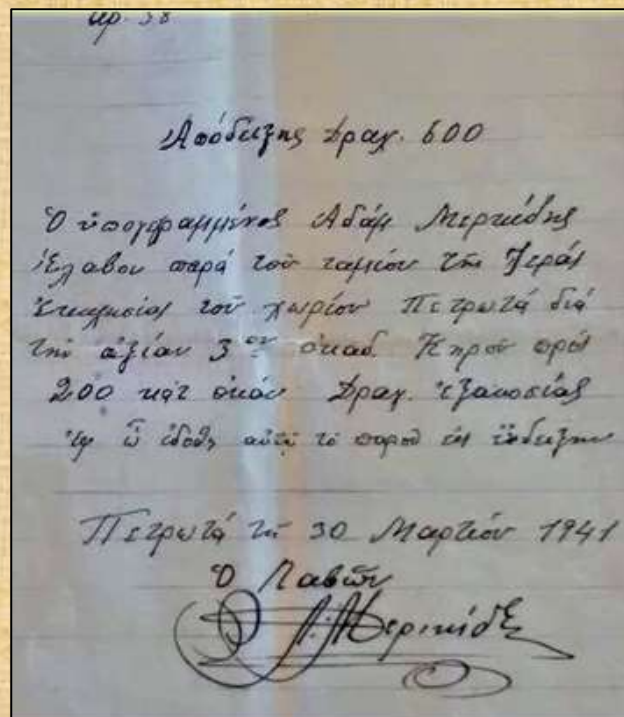 αρ. 38
Απόδειξης Δραχ. 600
Ὁ ὑπογεγραμμένος Αδάμ Μερικίδης
Ἔλαβον παρά τοῦ ταμίου τῆς Ἱεράς
Ἐκκλησίας τοῦ χωρίου Πετρωτά διά
τὴν ἀξίαν 3ων ὀκάδ. Κηροῦ πρός
200 κατ ὀκάν Δραχ. ἑξακοσίας
ἐφ ᾧ ἐδόθη αὐτῷ τὸ παρόν εἰς ἔνδειξην
Πετρωτά τῇ 30 Μαρτίου 1941
Ὁ Λαβῶν
Α. Μερικίδης